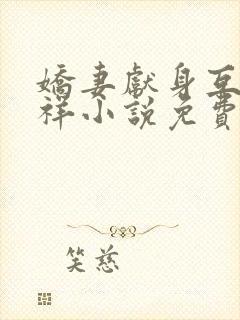 嬌妻獻身互
祥小說免費
笑慈